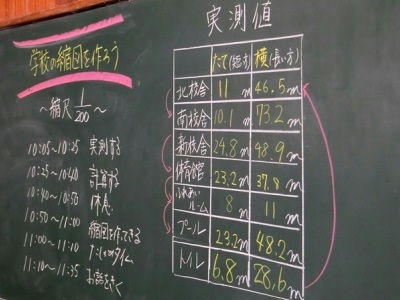 学校の縮図を作ろう
～縮尺 1/200～
10:05～10:25 実測する
10:25～10:40 計算する
10:40～10:50 休息
10:50～11:00 縮図を作ってきる
11:00～11:10
11:10～11:35 お話をきく
実測値
たて(短方) 横(長い方)
北校舎 11m 46.5m
南校舎 10.1m 73.2m
新校舎 24.8m 48.9m
体育館 23.2m 37.8m
ふれあいルーム 8m 11m
プール 23.2m 48.2m
トイレ 6.8m 28.6m